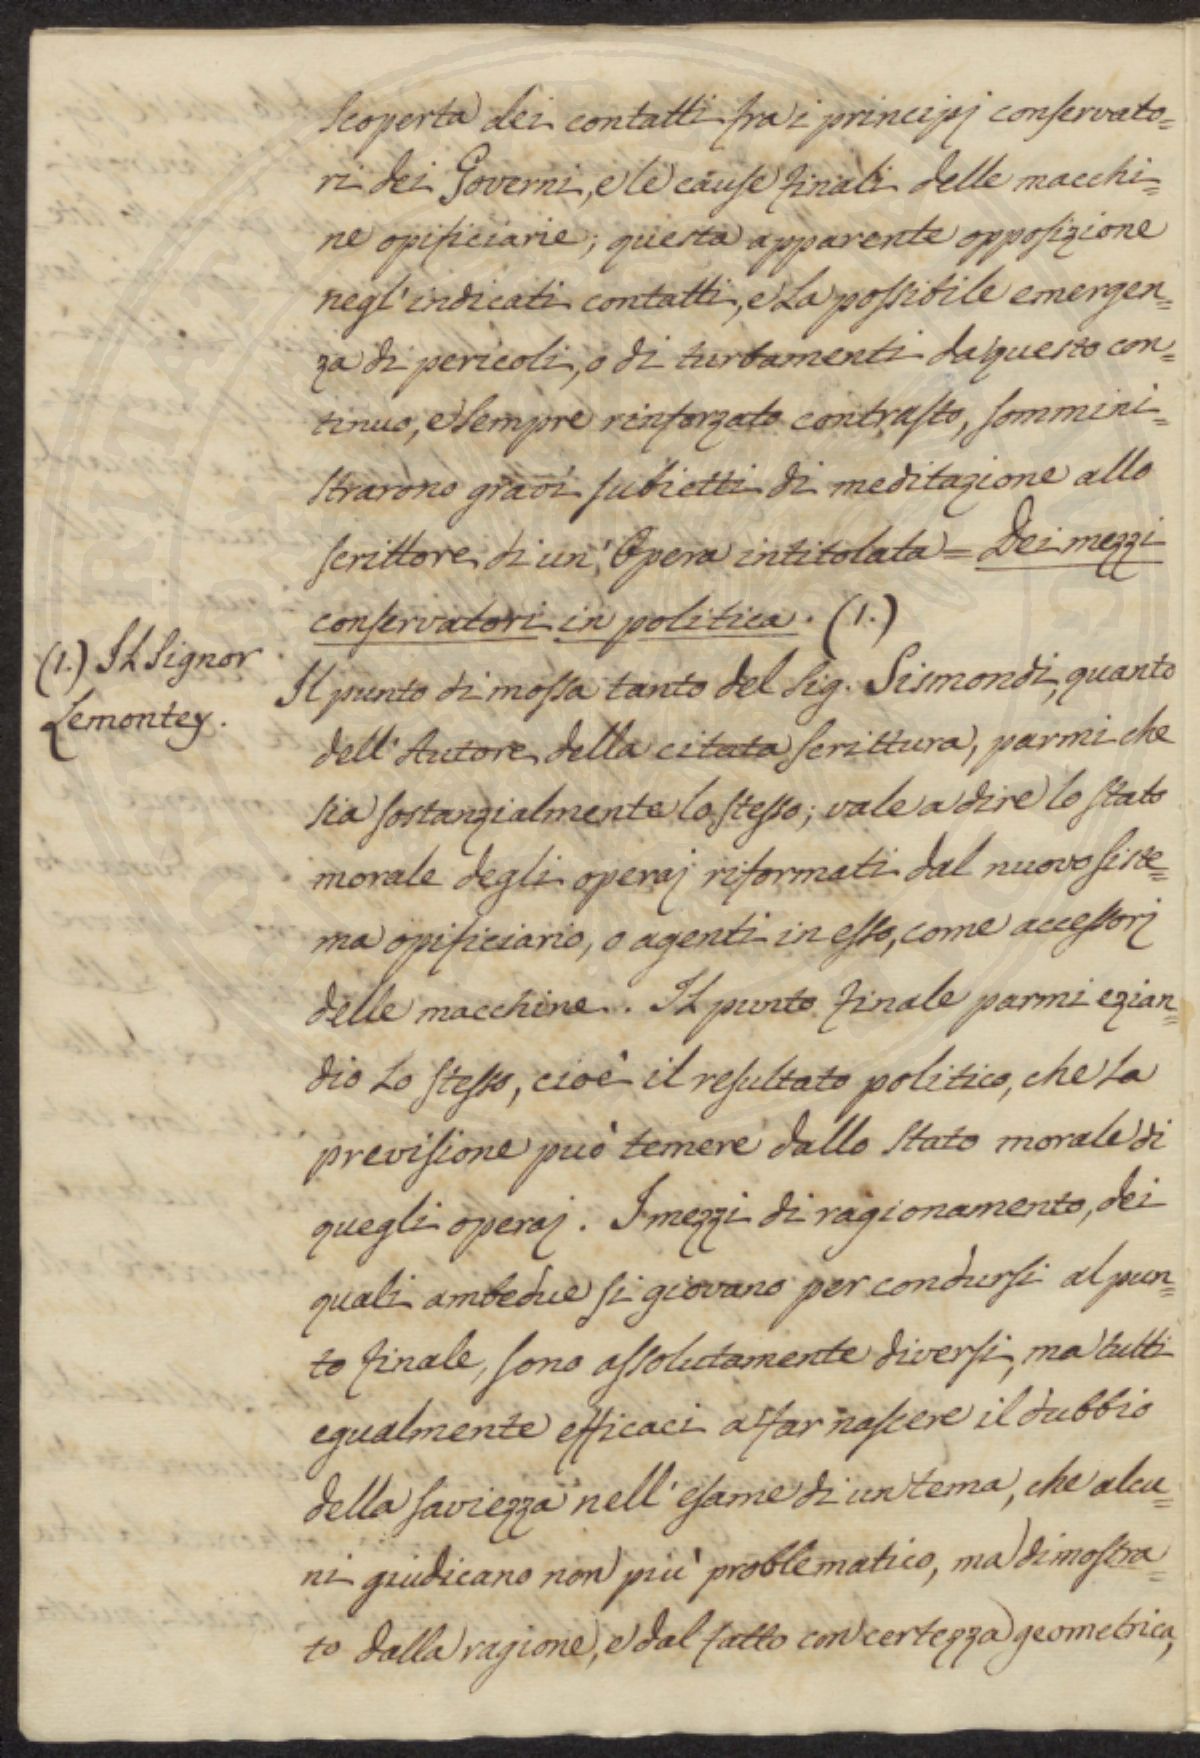 scoperta dei contatti fra i principj conservato=
ri dei Governi, e le cause finali delle macchi=
ne opificiarie; questa apparente opposizione
negl'indicati contatti, e la possibile emergen=
za di pericoli, o di turbamenti da questo con=
tinuo, e sempre rinforzato contrasto, sommini=
strarono gravi subietti di meditazione allo
scrittore di un'Opera intitolata = Dei mezzi
conservatori in politica. (1.)
(1.) Il Signor
Lemontey.
Il punto di mossa tanto del Sig. Sismondi, quanto
dell'Autore della citata scrittura, parmi che
sia sostanzialmente lo stesso; vale a dire lo stato
morale degli operaj riformati dal nuovo siste=
ma opificiario, o agenti in esso, come accessorj
delle macchine. Il punto finale parmi ezian=
dio lo stesso, cioè il resultato politico, che la
previsione può temere dallo stato morale di
quegli operaj. I mezzi di ragionamento, dei
quali ambedue si giovano per condursi al pun=
to finale, sono assolutamente diversi, ma tutti
egualmente efficaci a far nascere il dubbio
della saviezza nell'esame di un tema, che alcu=
ni giudicano non più problematico, ma dimostra=
to dalla ragione, e dal fatto con certezza geometrica,